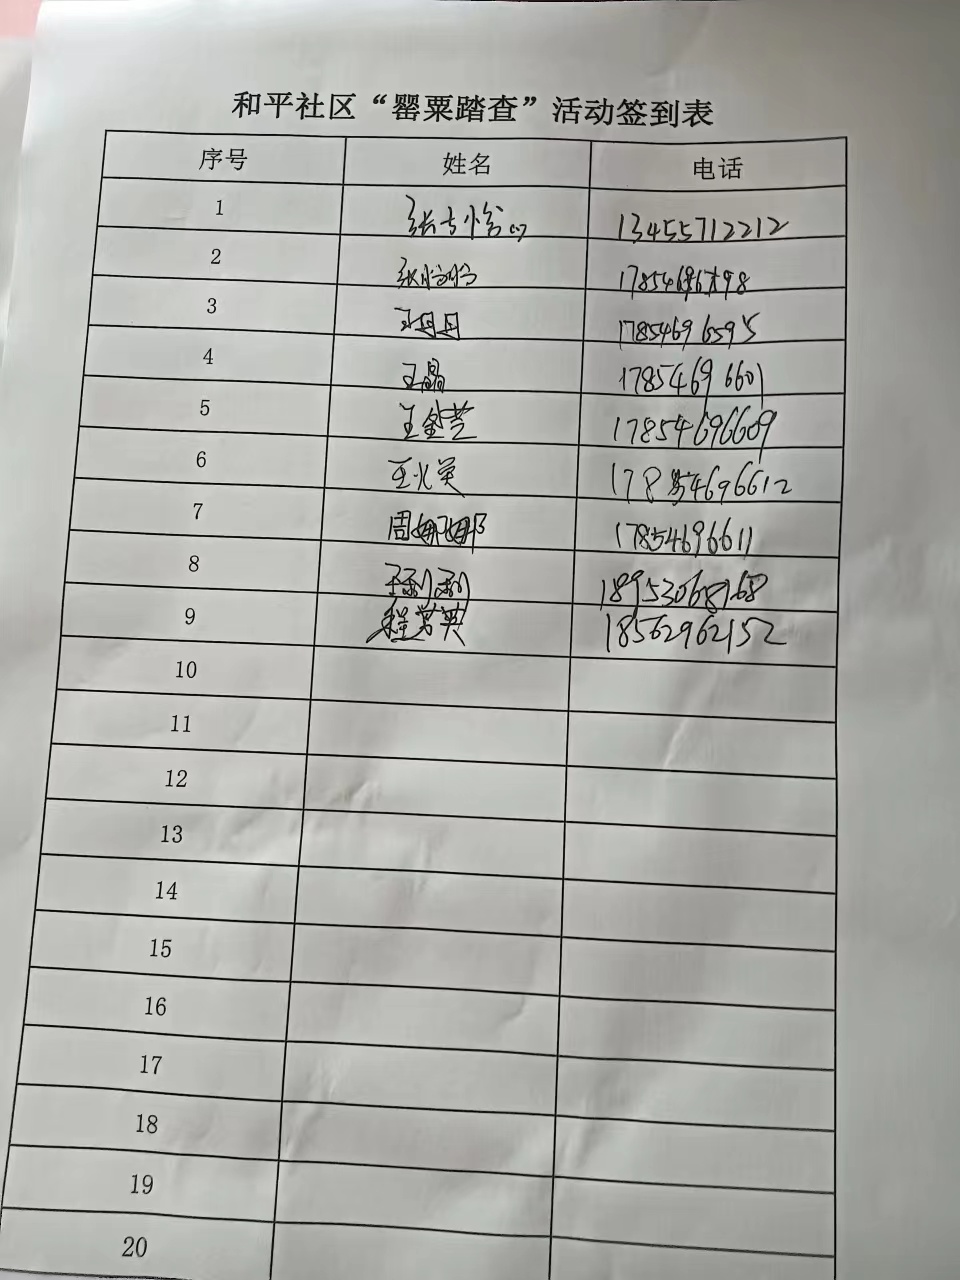 和平社区“罂粟踏查”活动签到表
序号 姓名 电话
1 13455712212
2
3 王丹丹 17854696595
4 王晶 17854696601
5 17854696609
6 王火英 17854696612
7 周娜娜 17854696611
8 18953068168
9 18562962152
10
11
12
13
14
15
16
17
18
19
20